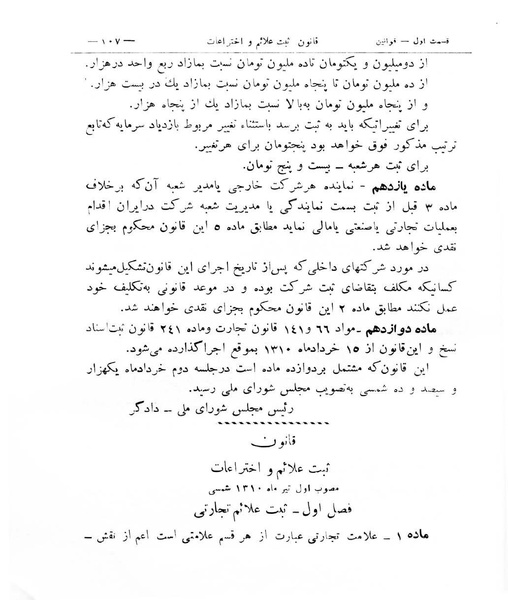 قسمت اول — قوانین
قانون ثبت علائم و اختراعات
— ۱۰۷ —
از دومیلیون و یکتومان تاده ملیون تومان نسبت بمازاد ربع واحد درهزار.
از ده ملیون تومان تا پنجاه ملیون تومان نسبت بمازاد یك در بیست هزار .
و از پنجاه ملیون تومان به‌بالا نسبت بمازاد یك از پنجاه هزار.
برای تغییراتیکه باید به ثبت برسد باستثناء تغییر مربوط بازدیاد سرمایه‌که‌تابع
ترتیب مذکور فوق خواهد بود پنجتومان برای هرتغییر.
برای ثبت هرشعبه ــ بیست و پنج تومان.
ماده یازدهم - نماینده هرشرکت خارجی یامدیر شعبه آن‌که برخلاف
ماده ۳ قبل از ثبت بسمت نمایندگی یا مدیریت شعبه شرکت درایران اقدام
بعملیات تجارتی یاصنعتی یامالی نماید مطابق ماده ۵ این قانون محکوم بجزای
نقدی خواهد شد.
در مورد شرکتهای داخلی‌که پس‌از تاریخ اجرای این قانون‌تشکیل‌میشوند
کسانیکه مکلف بتقاضای ثبت شرکت بوده و در موعد قانونی به‌تکلیف خود
عمل نکنند مطابق ماده ۲ این قانون محکوم بجزای نقدی خواهند شد.
ماده دوازدهم ــ مواد ۶۶ و۱۴۱ قانون تجارت وماده ۲۴۱ قانون ثبت‌اسناد
نسخ و این‌قانون از ۱۵ خردادماه ۱۳۱۰ بموقع اجراگذارده می‌شود.
این قانون‌که مشتمل بردوازده ماده است درجلسه دوم خردادماه یکهزار
و سیصد و ده شمسی به‌تصویب مجلس شورای ملی رسید.
رئیس مجلس شورای ملی ــ دادگر
قانون
ثبت علائم و اختراعات
مصوب اول تیر ماه ۱۳۱۰ شمسی
فصل اول ــ ثبت علائم تجارتی
ماده ۱ ــ علامت تجارتی عبارت از هر قسم علامتی است اعم از نقش ــ